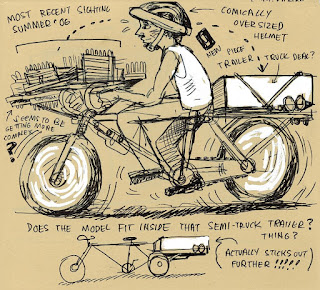 MOST RECENT SIGHTING
SUMMER '06
COMICALLY
OVERSIZED
HELMET
NEW PIECE
TRAILER / TRUCK DEAL?
SEEMS TO BE
GETTING MORE
COMPLEX
?
DOES THE MODEL FIT INSIDE THAT SEMI-TRUCK TRAILER?
THING?
(ACTUALLY STICKS OUT
FURTHER !!!!!)